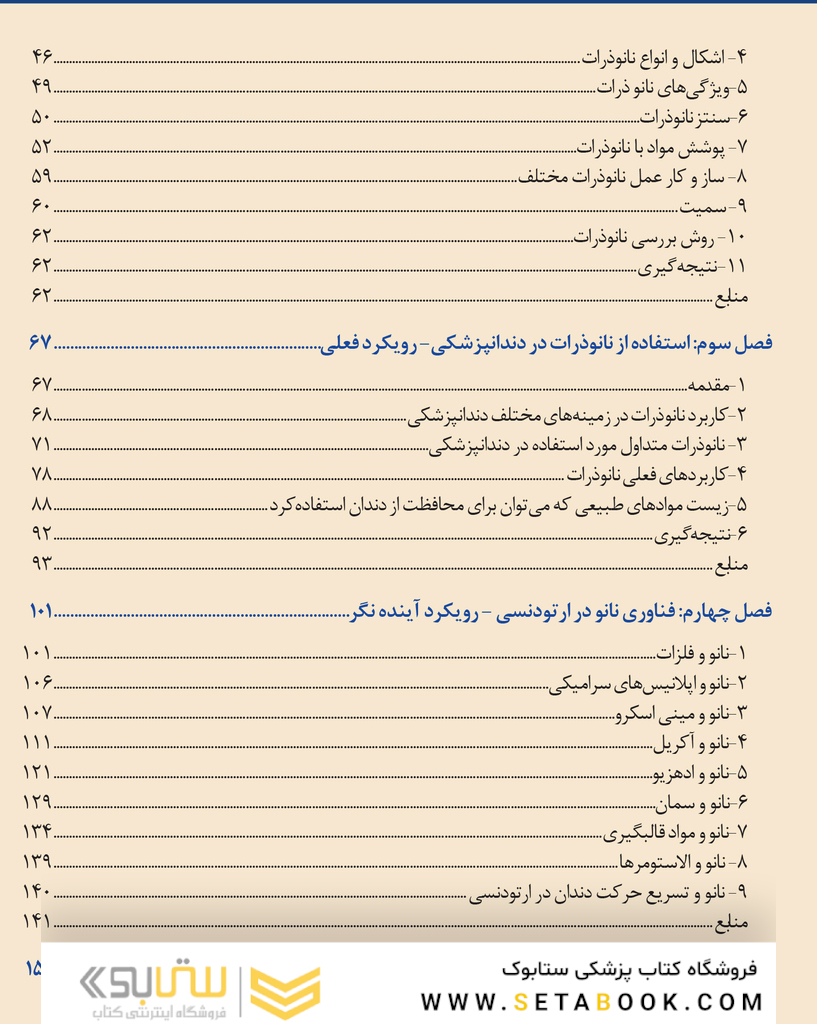 ۴- اشکال و انواع نانوذرات ۴۶
۵-ویژگی‌های نانو ذرات ۴۹
۶-سنتز نانوذرات ۵۰
۷- پوشش مواد با نانوذرات ۵۲
۸- ساز و کار عمل نانوذرات مختلف ۵۹
۹-سمیت ۶۰
۱۰- روش بررسی نانوذرات ۶۲
۱۱-نتیجه‌گیری ۶۲
منابع ۶۲
فصل سوم: استفاده از نانوذرات در دندانپزشکی- رویکرد فعلی ۶۷
۱-مقدمه ۶۷
۲-کاربرد نانوذرات در زمینه‌های مختلف دندانپزشکی ۶۸
۳- نانوذرات متداول مورد استفاده در دندانپزشکی ۷۱
۴-کاربردهای فعلی نانوذرات ۷۸
۵-زیست موادهای طبیعی که می‌توان برای محافظت از دندان استفاده‌کرد ۸۸
۶-نتیجه‌گیری ۹۲
منابع ۹۳
فصل چهارم: فناوری نانو در ارتودنسی - رویکرد آینده نگر ۱۰۱
۱-نانو و فلزات ۱۰۱
۲-نانو و اپلانیس‌های سرامیکی ۱۰۶
۳-نانو و مینی اسکرو ۱۰۷
۴-نانو و آکریل ۱۱۱
۵-نانو و ادهزیو ۱۲۱
۶-نانو و سمان ۱۲۹
۷-نانو و مواد قالبگیری ۱۳۴
۸- نانو و الاستومرها ۱۳۹
۹- نانو و تسریع حرکت دندان در ارتودنسی ۱۴۰
منابع ۱۴۱
فروشگاه کتاب پزشکی ستابوک
WWW.SETABOOK.COM
ستابوک
فروشگاه اینترنتی کتاب